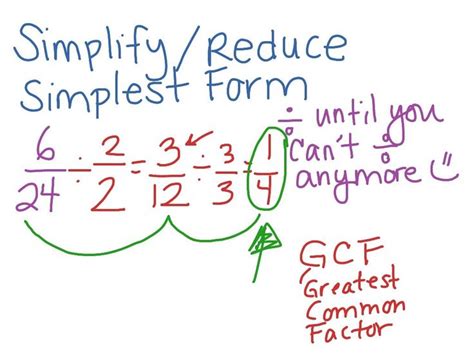 Simplify/Reduce
Simplest Form
6/24 ÷ 2/2 = 3/12 ÷ 3/3 = 1/4
÷ until you
can't ÷
anymore
GCF
Greatest
Common
Factor